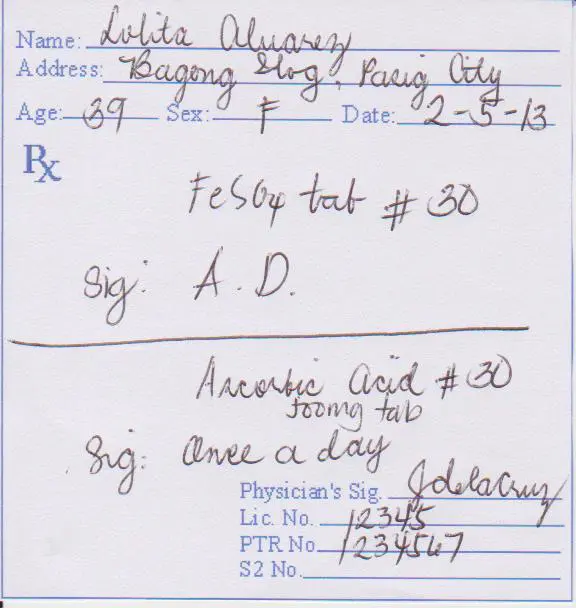 Name: Lolita Alvarez
Address: Bagong Ilog, Pasig City
Age: 39 Sex: F Date: 2-5-13
Rx
FeSO4 tab # 30
Sig: A.D.
Ascorbic Acid # 30
500mg tab
Sig: Once a day
Physician's Sig. Jdelacruz
Lic. No. 12345
PTR No. 1234567
S2 No.